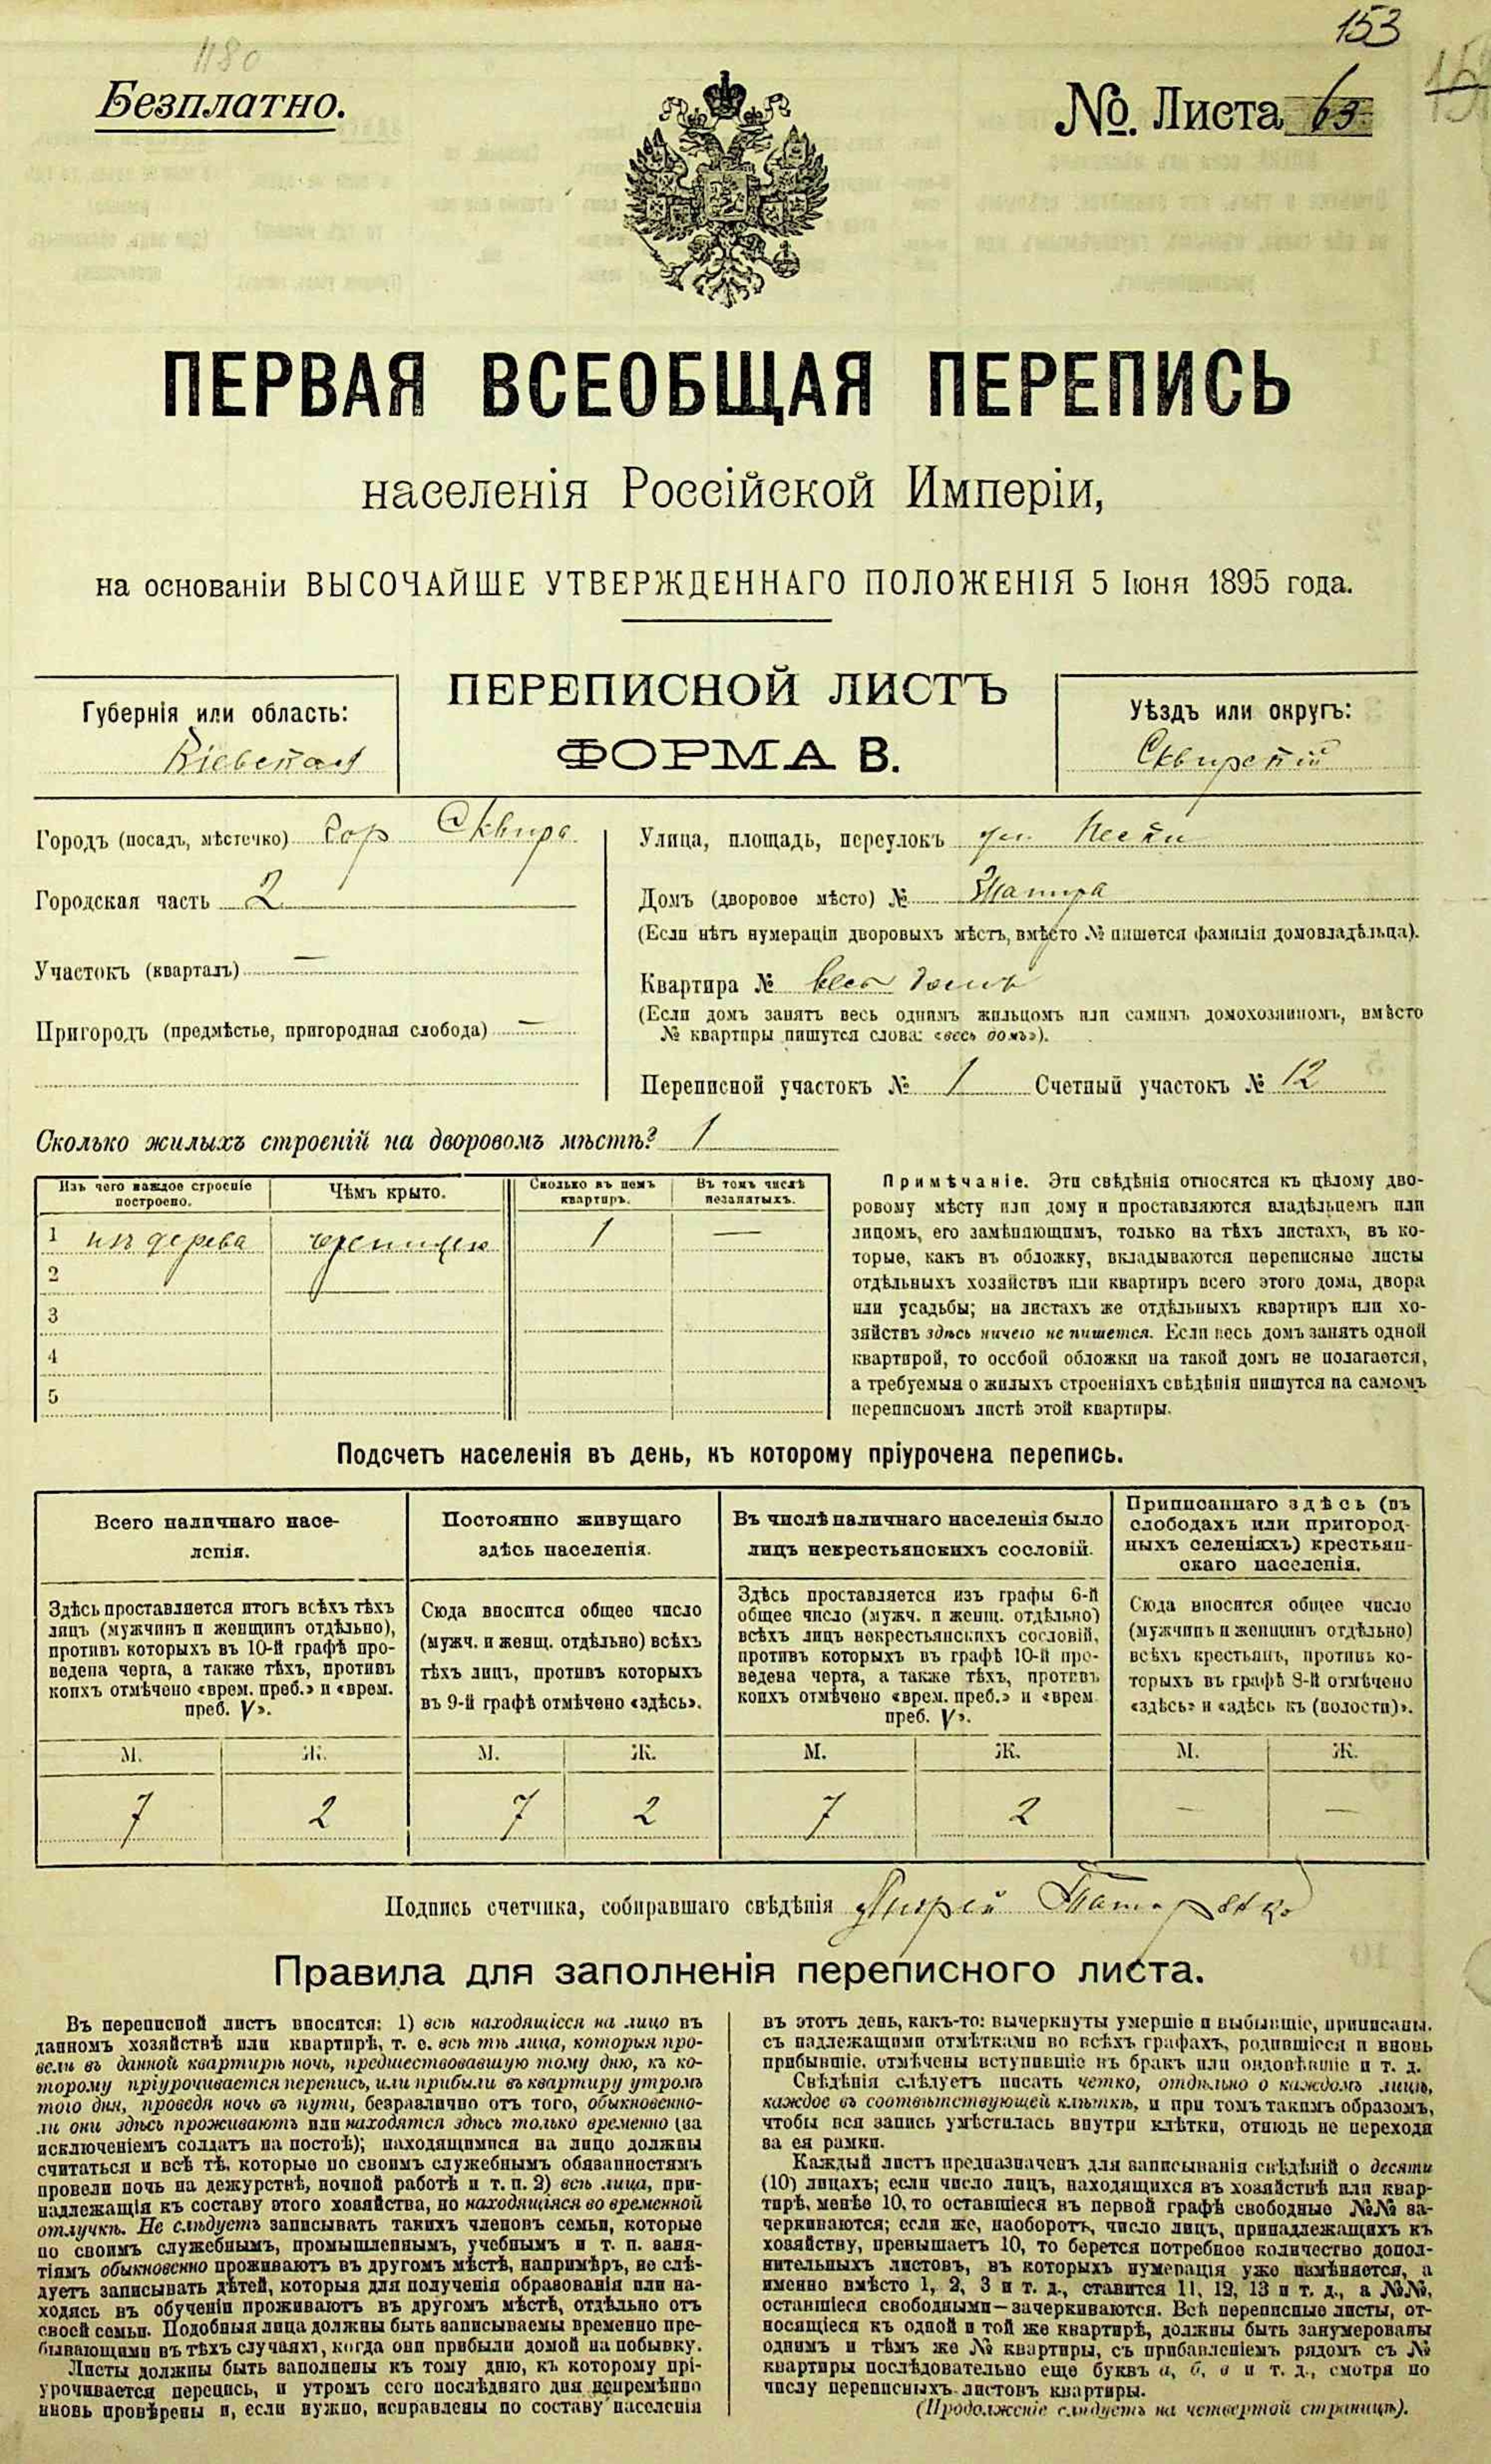 153
1180
Безплатно.
№. Листа 63
ПЕРВАЯ ВСЕОБЩАЯ ПЕРЕПИСЬ
населенія Россійской Имперіи,
на основаніи ВЫСОЧАЙШЕ УТВЕРЖДЕННАГО ПОЛОЖЕНІЯ 5 Іюня 1895 года.
ПЕРЕПИСНОЙ ЛИСТЪ
ФОРМА В.
Губернія или область:
Кіевская
Уѣздъ или округъ:
Сквирскій
Городъ (посадъ, мѣстечко) гор Сквира
Городская часть 2
Участокъ (кварталъ) —
Пригородъ (предмѣстье, пригородная слобода) —
Улица, площадь, переулокъ ул.
Домъ (дворовое мѣсто) №
(Если нѣтъ нумераціи дворовыхъ мѣстъ, вмѣсто № пишется фамилія домовладѣльца).
Квартира № весь домъ
(Если домъ занятъ весь однимъ жильцомъ или самимъ домохозяиномъ, вмѣсто
№ квартиры пишутся слова: «весь домъ»).
Переписной участокъ № 1 Счетный участокъ № 12
Сколько жилыхъ строеній на дворовомъ мѣстѣ? 1
Изъ чего каждое строеніе построено. Чѣмъ крыто. Сколько въ немъ квартиръ. Въ томъ числѣ незанятыхъ.
1 изъ дерева черепицею 1 —
2
3
4
5
Примѣчаніе. Эти свѣдѣнія относятся къ цѣлому дво-
ровому мѣсту или дому и проставляются владѣльцемъ или
лицомъ, его замѣняющимъ, только на тѣхъ листахъ, въ ко-
торые, какъ въ обложку, вкладываются переписные листы
отдѣльныхъ хозяйствъ или квартиръ всего этого дома, двора
или усадьбы; на листахъ же отдѣльныхъ квартиръ или хо-
зяйствъ здѣсь ничего не пишется. Если весь домъ занятъ одной
квартирой, то особой обложки на такой домъ не полагается,
а требуемыя о жилыхъ строеніяхъ свѣдѣнія пишутся на самомъ
переписномъ листѣ этой квартиры.
Подсчетъ населенія въ день, къ которому пріурочена перепись.
Всего наличнаго насе-
ленія.
Здѣсь проставляется итогъ всѣхъ тѣхъ
лицъ (мужчинъ и женщинъ отдѣльно),
противъ которыхъ въ 10-й графѣ про-
ведена черта, а также тѣхъ, противъ
коихъ отмѣчено «врем. преб.» и «врем.
преб. V».
М. Ж.
7 2
Постоянно живущаго
здѣсь населенія.
Сюда вносится общее число
(мужч. и женщ. отдѣльно) всѣхъ
тѣхъ лицъ, противъ которыхъ
въ 9-й графѣ отмѣчено «здѣсь».
М. Ж.
7 2
Въ числѣ наличнаго населенія было
лицъ некрестьянскихъ сословій.
Здѣсь проставляется изъ графы 6-й
общее число (мужч. и женщ. отдѣльно)
всѣхъ лицъ некрестьянскихъ сословій,
противъ которыхъ въ графѣ 10-й про-
ведена черта, а также тѣхъ, противъ
коихъ отмѣчено «врем. преб.» и «врем.
преб. V».
М. Ж.
7 2
Приписаннаго здѣсь (въ
слободахъ или пригород-
ныхъ селеніяхъ) крестьян-
скаго населенія.
Сюда вносится общее число
(мужчинъ и женщинъ отдѣльно)
всѣхъ крестьянъ, противъ ко-
торыхъ въ графѣ 8-й отмѣчено
«здѣсь» и «здѣсь къ (волости)».
М. Ж.
— —
Подпись счетчика, собиравшаго свѣдѣнія
Правила для заполненія переписного листа.
Въ переписной листъ вносятся: 1) всѣ находящіеся на лицо въ
данномъ хозяйствѣ или квартирѣ, т. е. всѣ тѣ лица, которыя про-
вели въ данной квартирѣ ночь, предшествовавшую тому дню, къ ко-
торому пріурочивается перепись, или прибыли въ квартиру утромъ
того дня, проведя ночь въ пути, безразлично отъ того, обыкновенно-
ли они здѣсь проживаютъ или находятся здѣсь только временно (за
исключеніемъ солдатъ на постоѣ); находящимися на лицо должны
считаться и всѣ тѣ, которые по своимъ служебнымъ обязанностямъ
провели ночь на дежурствѣ, ночной работѣ и т. п. 2) всѣ лица, при-
надлежащія къ составу этого хозяйства, но находящіяся во временной
отлучкѣ. Не слѣдуетъ записывать такихъ членовъ семьи, которые
по своимъ служебнымъ, промышленнымъ, учебнымъ и т. п. заня-
тіямъ обыкновенно проживаютъ въ другомъ мѣстѣ, напримѣръ, не слѣ-
дуетъ записывать дѣтей, которыя для полученія образованія или на-
ходясь въ обученіи проживаютъ въ другомъ мѣстѣ, отдѣльно отъ
своей семьи. Подобныя лица должны быть записываемы временно пре-
бывающими въ тѣхъ случаяхъ, когда они прибыли домой на побывку.
Листы должны быть заполнены къ тому дню, къ которому прі-
урочивается перепись, и утромъ сего послѣдняго дня непремѣнно
вновь провѣрены и, если нужно, исправлены по составу населенія
въ этотъ день, какъ-то: вычеркнуты умершіе и выбывшіе, приписаны,
съ надлежащими отмѣтками во всѣхъ графахъ, родившіеся и вновь
прибывшіе, отмѣчены вступившіе въ бракъ или овдовѣвшіе и т. д.
Свѣдѣнія слѣдуетъ писать четко, отдѣльно о каждомъ лицѣ,
каждое въ соотвѣтствующей клѣткѣ, и при томъ такимъ образомъ,
чтобы вся запись умѣстилась внутри клѣтки, отнюдь не переходя
за ея рамки.
Каждый листъ предназначенъ для записыванія свѣдѣній о десяти
(10) лицахъ; если число лицъ, находящихся въ хозяйствѣ или квар-
тирѣ, менѣе 10, то оставшіеся въ первой графѣ свободные №№ за-
черкиваются; если же, наоборотъ, число лицъ, принадлежащихъ къ
хозяйству, превышаетъ 10, то берется потребное количество допол-
нительныхъ листовъ, въ которыхъ нумерація уже измѣняется, а
именно вмѣсто 1, 2, 3 и т. д., ставится 11, 12, 13 и т. д., а №№,
оставшіеся свободными—зачеркиваются. Всѣ переписные листы, от-
носящіеся къ одной и той же квартирѣ, должны быть занумерованы
однимъ и тѣмъ же № квартиры, съ прибавленіемъ рядомъ съ №
квартиры послѣдовательно еще буквъ а, б, в и т. д., смотря по
числу переписныхъ листовъ квартиры.
(Продолженіе слѣдуетъ на четвертой страницѣ).